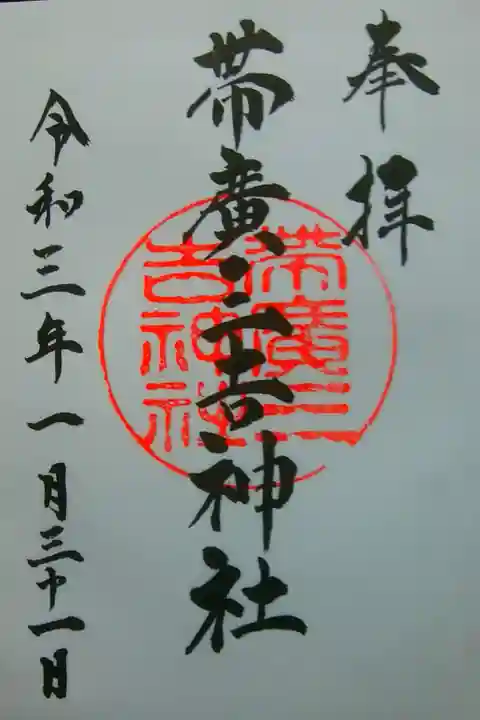 奉拝
帯廣三吉神社
帯廣三吉神社
令和三年一月三十一日